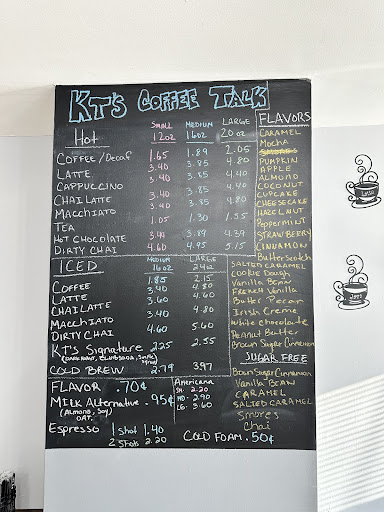 KT'S COFFEE TALK
Hot
SMALL MEDIUM LARGE
12oz 16oz 20oz
COFFEE/Decaf 1.65 1.89 2.05
LATTE 3.40 3.85 4.80
CAPPUCCINO 3.40 3.85 4.40
CHAI LATTE 3.40 3.85 4.40
MACCHIATO 3.40 3.85 4.80
TEA 1.05 1.30 1.55
Hot CHOCOLATE 4.39
DIRTY CHAI 4.60 4.95 5.15
ICED
MEDIUM LARGE
16oz 24oz
COFFEE 1.85 2.15
LATTE 3.40 4.80
CHAI LATTE 3.60 4.60
MACCHIATO 3.40 4.80
DIRTY CHAI 4.60 5.60
KT'S Signature 2.25 2.55
COLD BREW 2.79 3.97
FLAVOR .70¢
MILK Alternative .95¢
(Almond, Soy)
OAT.
Espresso 1 Shot 1.40
2 Shots 2.20
Americana
SM. 2.20
MD. 2.90
LG. 3.60
COLD FOAM .50¢
FLAVORS
CARAMEL
Mocha
PUMPKIN
APPLE
ALMOND
COCONUT
CUPCAKE
CHEESECAKE
HAZELNUT
Peppermint
STRAWBERRY
CINNAMON
Butterscotch
SALTED CARAMEL
Cookie Dough
Vanilla Bean
French Vanilla
Butter Pecan
Irish Creme
White chocolate
Peanut Butter
Brown Sugar Cinnamon
SUGAR FREE
Brown Sugar Cinnamon
Vanilla BEAN
CARAMEL
SALTED CARAMEL
Smores
Chai
Latte
Java